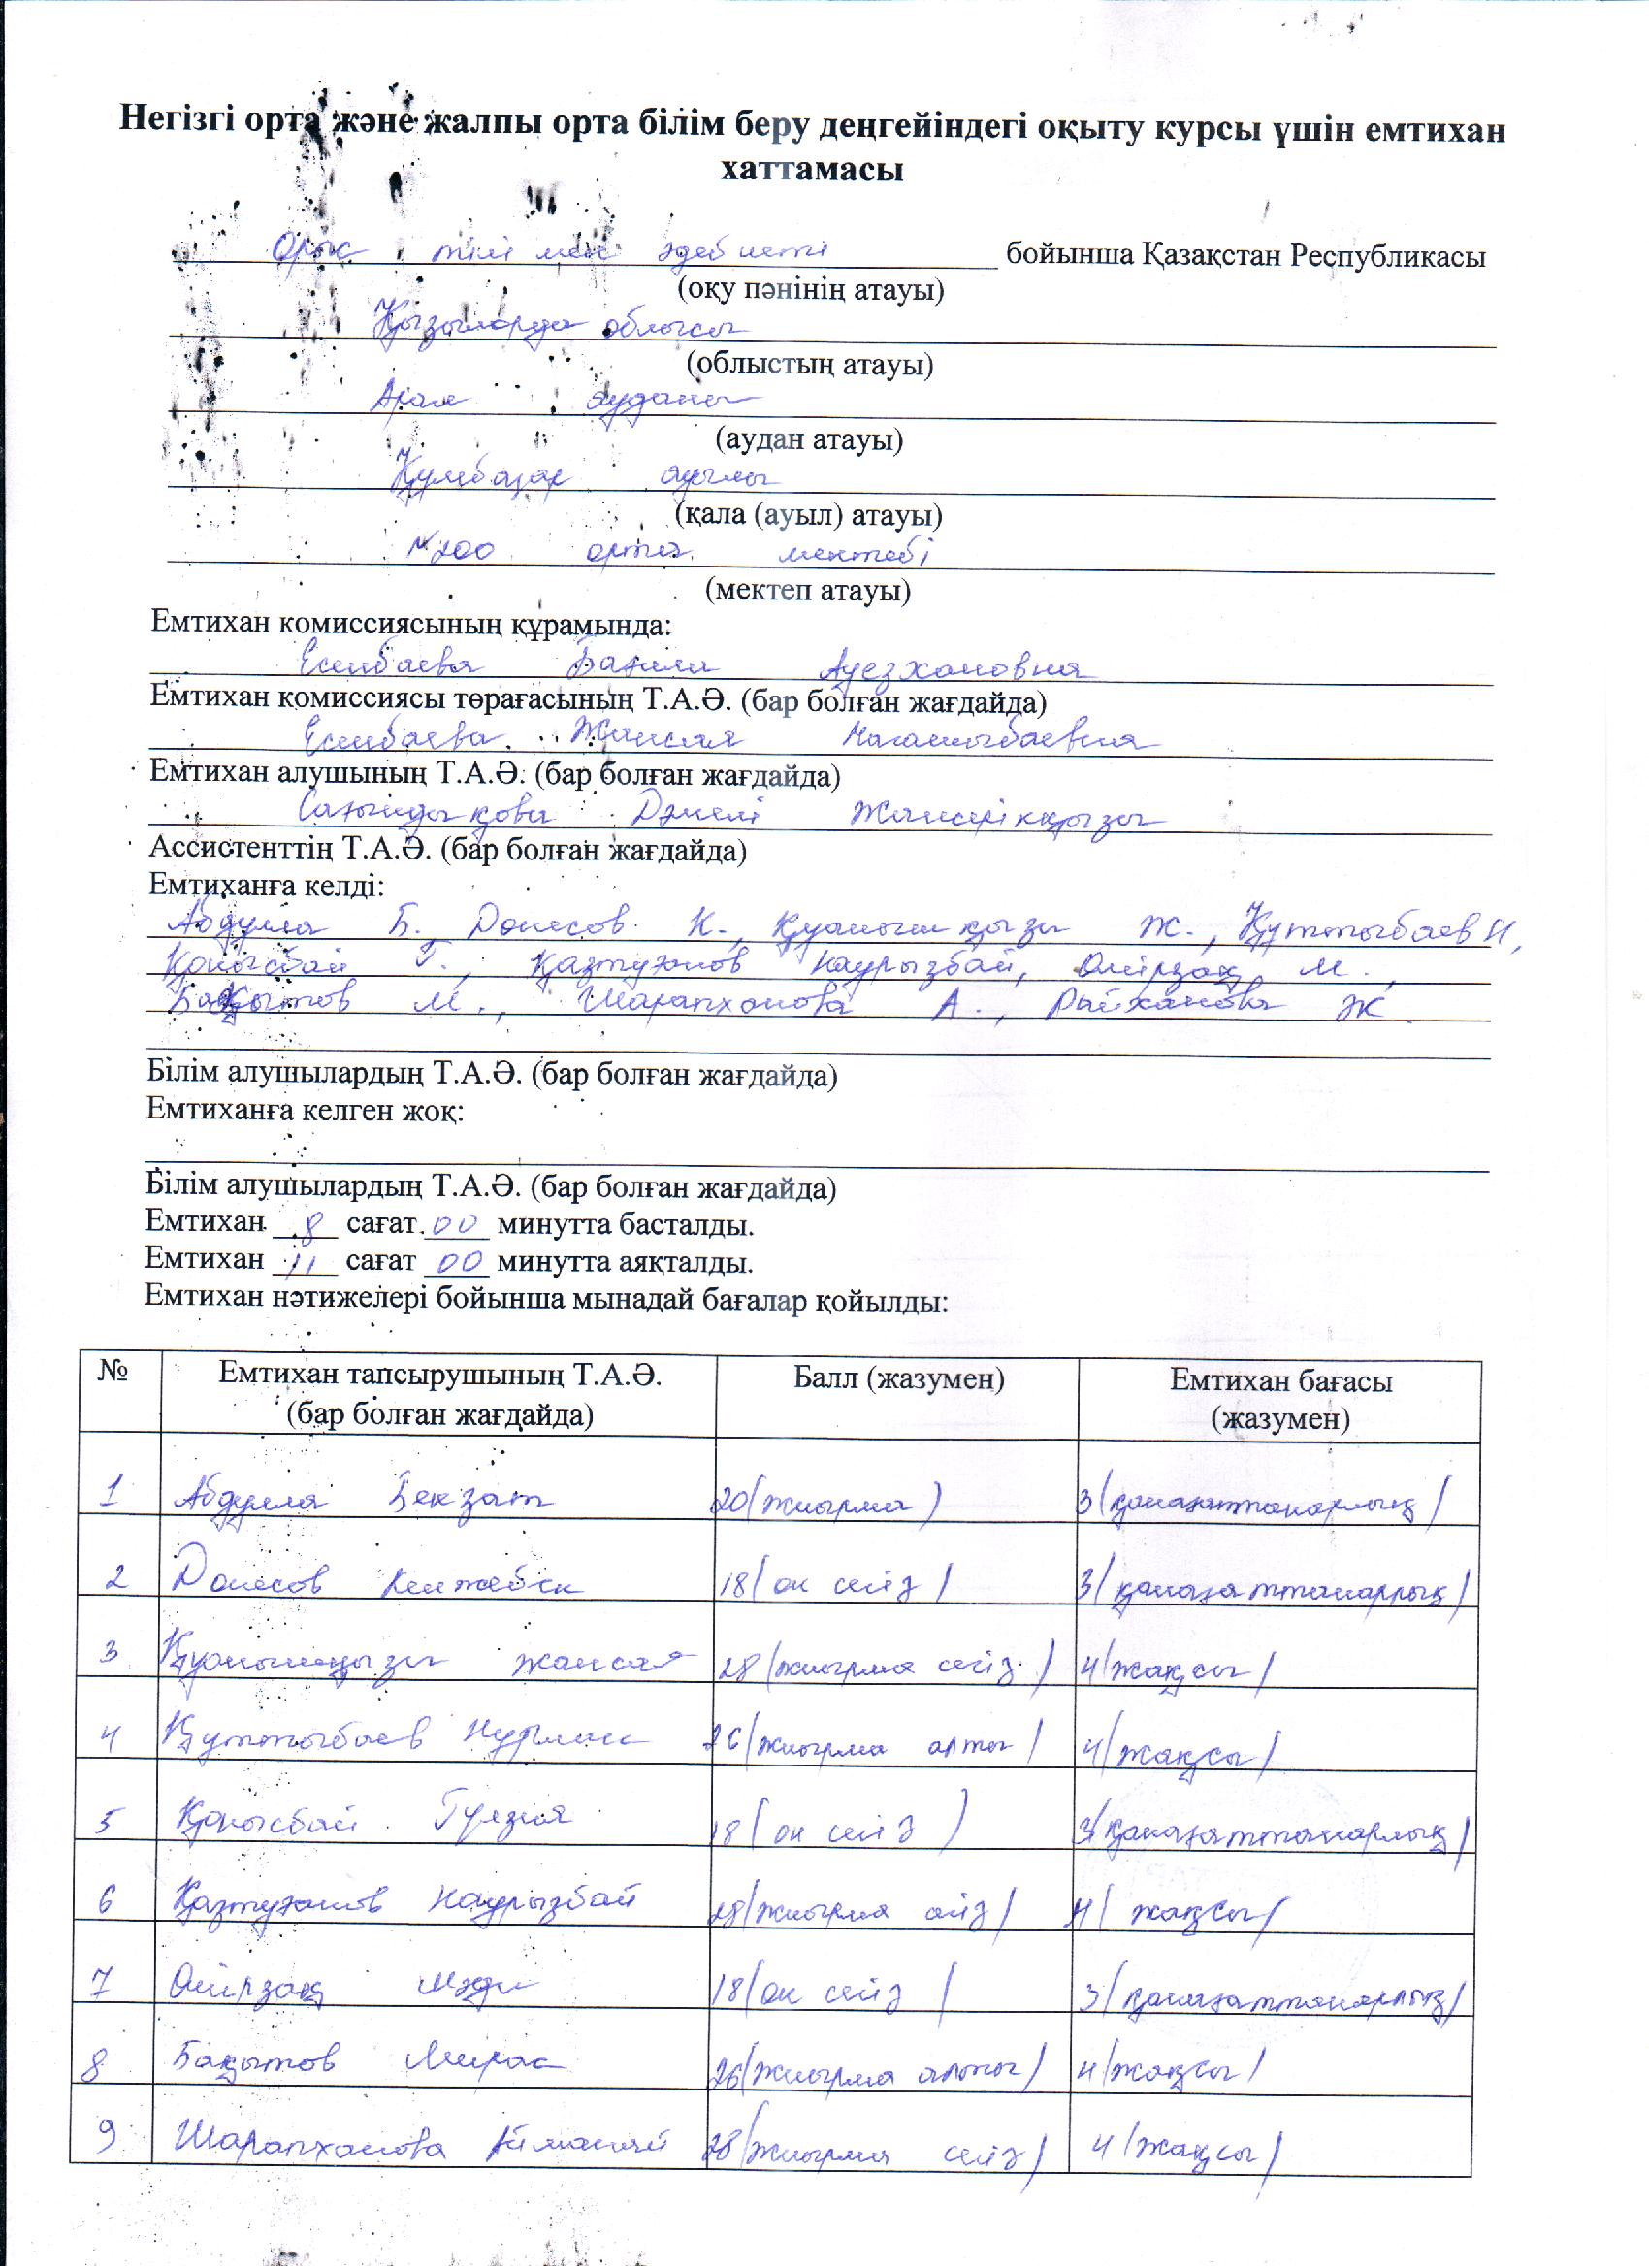 Негізгі орта және жалпы орта білім беру деңгейіндегі оқыту курсы үшін емтихан
хаттамасы
Орыс тілі мен әдебиеті бойынша Қазақстан Республикасы
(оқу пәнінің атауы)
Қызылорда облысы
(облыстың атауы)
Арал ауданы
(аудан атауы)
Құмбазар ауылы
(қала (ауыл) атауы)
№200 орта мектебі
(мектеп атауы)
Емтихан комиссиясының құрамында:
Есенбаева Базила Ауезхановна
Емтихан комиссиясы төрағасының Т.А.Ә. (бар болған жағдайда)
Есенбаева Жансая
Емтихан алушының Т.А.Ә. (бар болған жағдайда)
Сағындықова Дәмелі Жансерікқызы
Ассистенттің Т.А.Ә. (бар болған жағдайда)
Емтиханға келді:
Абдулла Б., Данесов К., Қуанышқызы Ж., Құттыбаев Н,
Қонысбай Г., Қазтуғанов Наурызбай, Өмірзақ М.,
Бақытов М., Шарапханова А., Райханова Ж.
Білім алушылардың Т.А.Ә. (бар болған жағдайда)
Емтиханға келген жоқ:
Білім алушылардың Т.А.Ә. (бар болған жағдайда)
Емтихан 8 сағат 00 минутта басталды.
Емтихан 11 сағат 00 минутта аяқталды.
Емтихан нәтижелері бойынша мынадай бағалар қойылды:
№ Емтихан тапсырушының Т.А.Ә. (бар болған жағдайда) Балл (жазумен) Емтихан бағасы (жазумен)
1 Абдулла Бекзат 20 (жиырма) 3 (қанағаттанарлық)
2 Данесов Кенжебек 18 (он сегіз) 3 (қанағаттанарлық)
3 Қуанышқызы Жансая 28 (жиырма сегіз) 4 (жақсы)
4 Құттыбаев Нұрлан 26 (жиырма алты) 4 (жақсы)
5 Қонысбай Гулзия 18 (он сегіз) 3 (қанағаттанарлық)
6 Қазтуғанов Наурызбай 28 (жиырма сегіз) 4 (жақсы)
7 Өмірзақ Мәди 18 (он сегіз) 3 (қанағаттанарлық)
8 Бақытов Мирас 26 (жиырма алты) 4 (жақсы)
9 Шарапханова 28 (жиырма сегіз) 4 (жақсы)